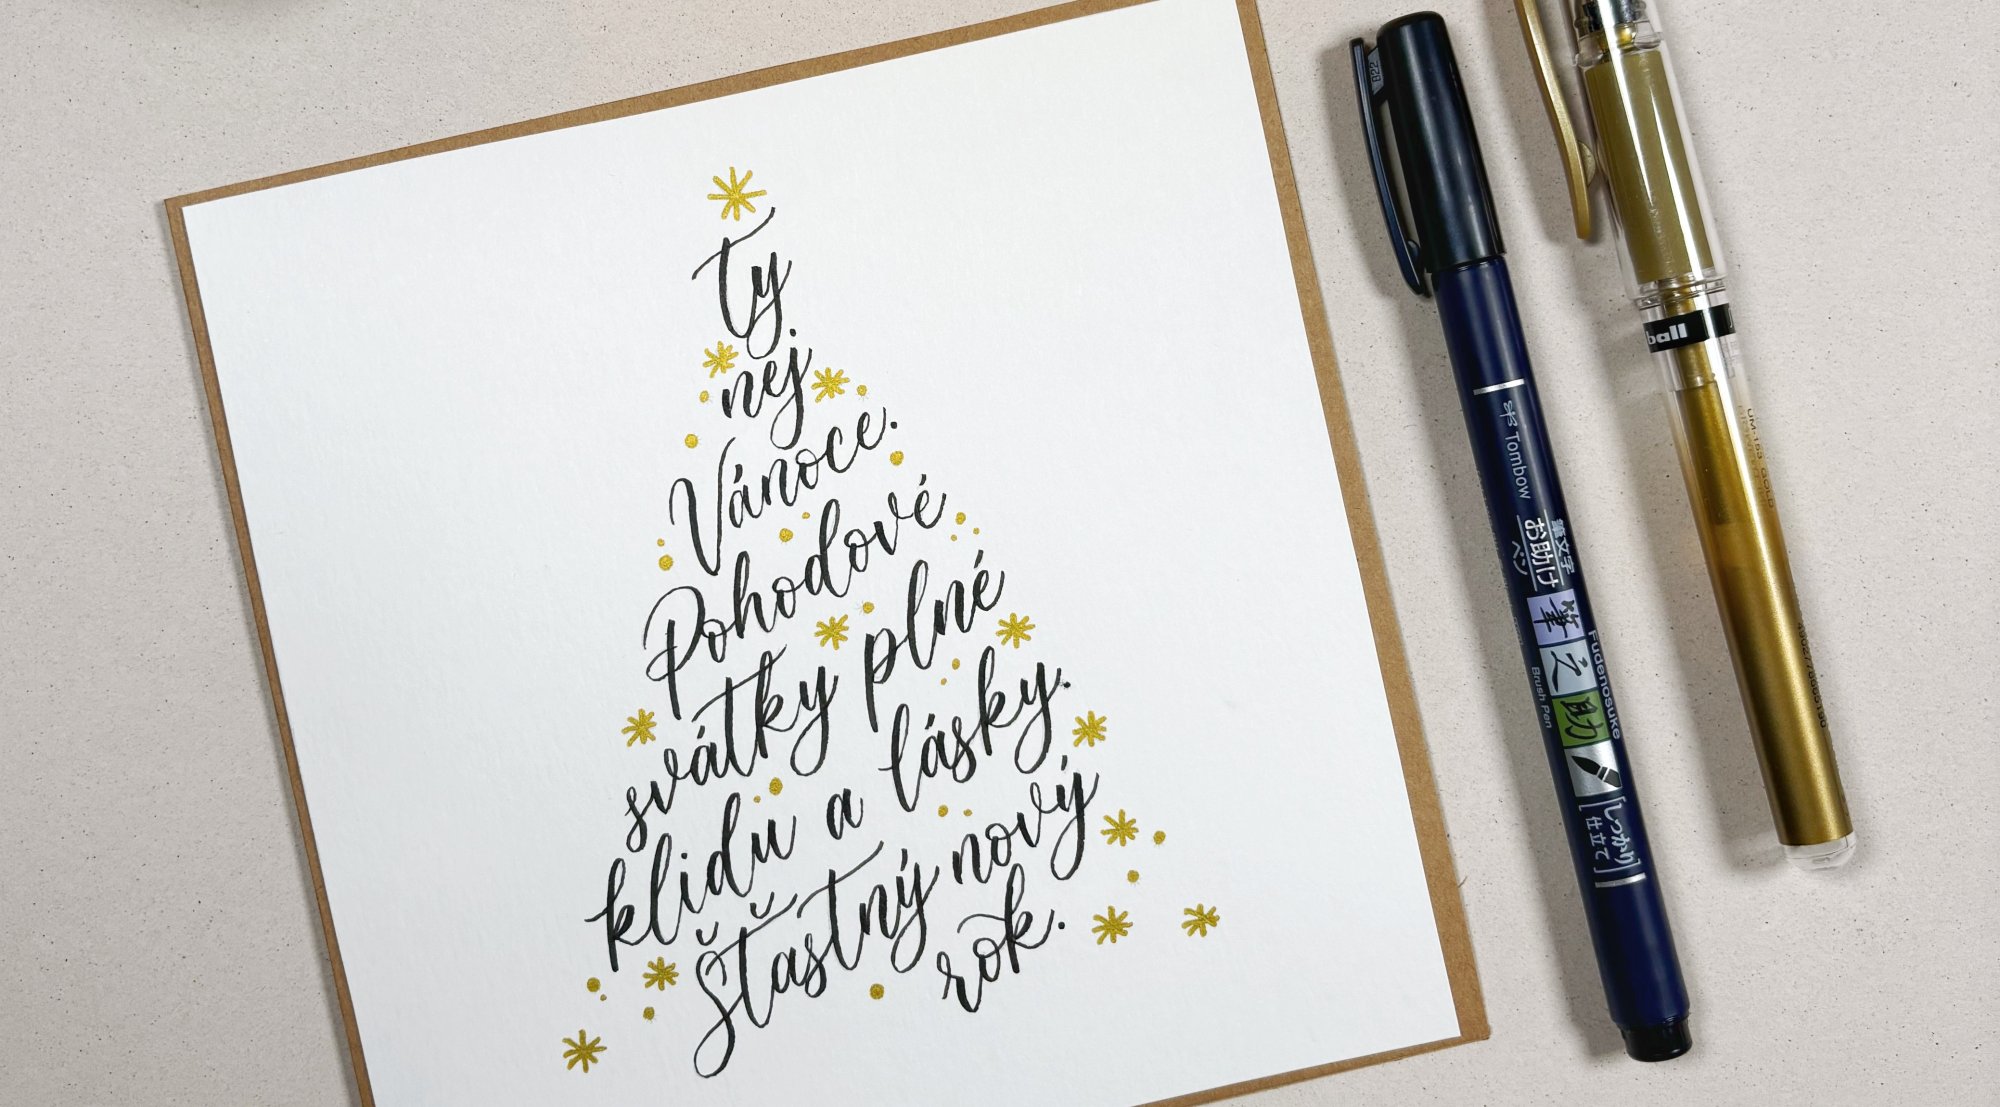 ty
nej
Vánoce.
Pohodové
svátky plné
klidu a lásky.
Šťastný nový
rok.
822
Tombow
筆文字
お助け
ペン
筆之助
Fudenosuke
Brush Pen
[しっかり
仕立て]
ball
UM-153 GOLD